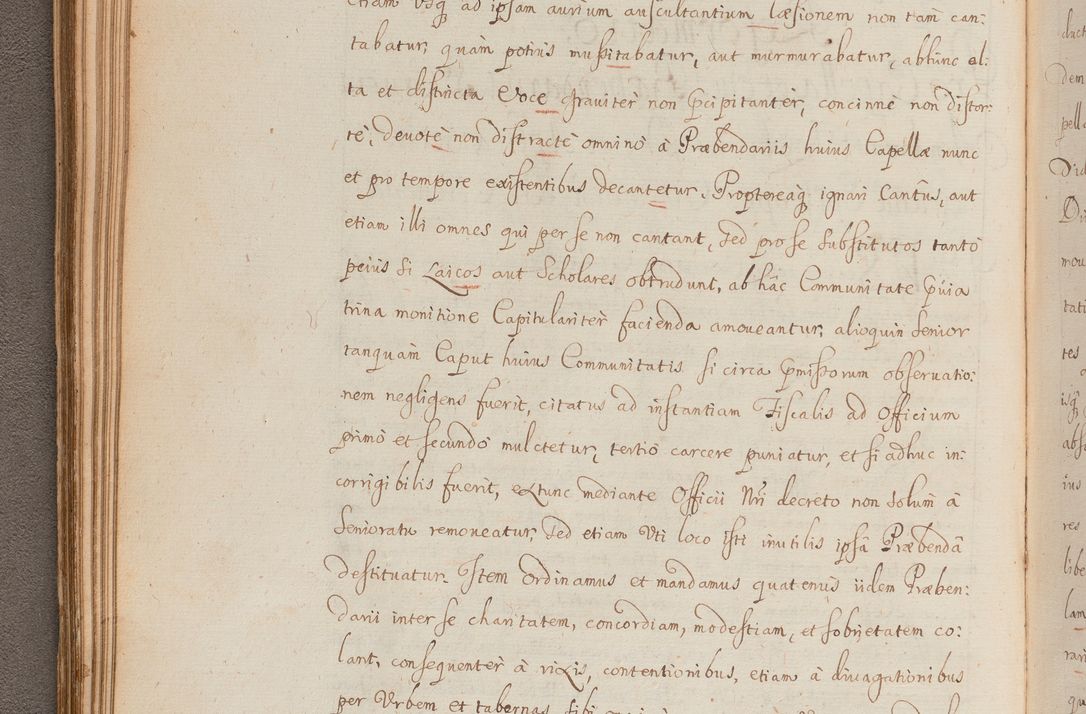 etiam Usq ad ipsam aurium auscultantium læsionem non tam can:
tabatur, quàm potius mussitabatur, aut murmurabatur, abhinc al:
ta et districta Voce graviter non pcipitanter, concinnè non distor:
tè, devotè non distractè omninò à Præbendariis huius Capellæ nunc
et pro tempore existentibus decantetur. Proptereaq ignari Cantûs, aut
etiam illi omnes qui per se non cantant, sed pro se substitutos tantò
peius si Laicos aut Scholares obtrudunt, ab hâc Communitate pùia
trina monitione Capitulariter facienda amoveantur, alioquin Senior
tanquàm Caput huius Communitatis si circa pmissorum observatio:
nem negligens fuerit, citatus ad instantiam Fiscalis ad Officium
primò et secundò mulctetur, tertiò carcere puniatur, et si adhuc in:
corrigibilis fuerit, extunc mediante Officii Nri decreto non solum à
Senioratu removeatur, sed etiam Uti loco isti inutilis ipsâ Præbendâ
destituatur. Item Ordinamus et mandamus quatenus iidem Præben:
darii inter se charitatem, concordiam, modestiam, et sobrietatem co:
lant, consequenter à rixis, contentionibus, etiam à divagationibus
per Urbem et tabernas sibi